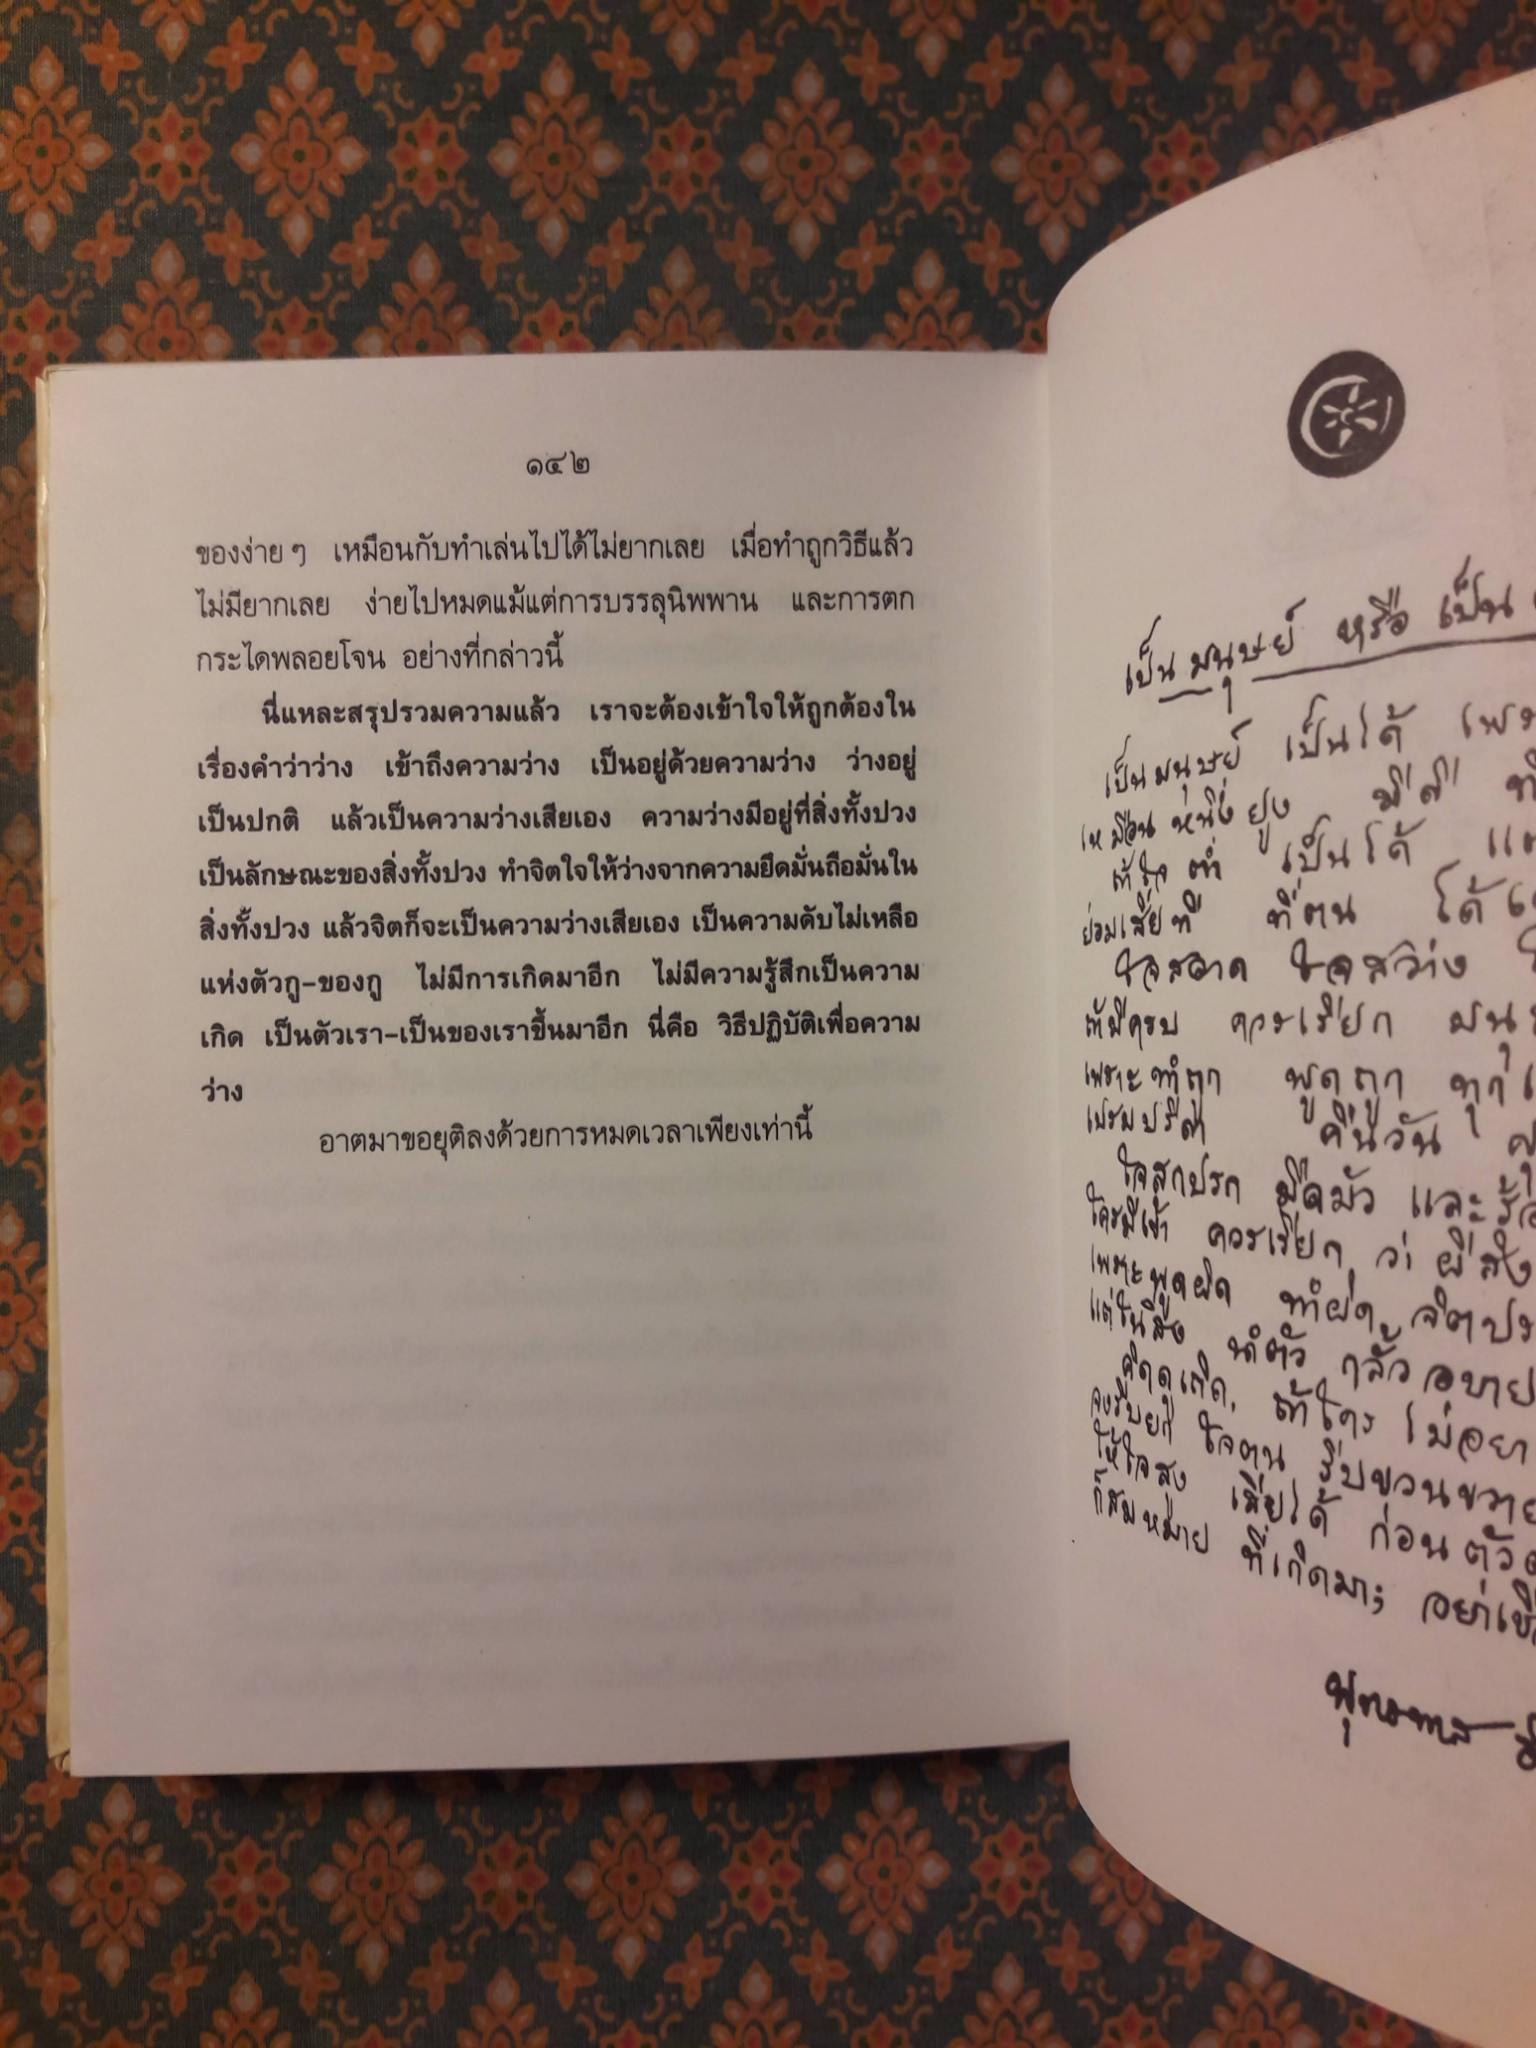 ๑๔๒
ของง่าย ๆ เหมือนกับทำเล่นไปได้ไม่ยากเลย เมื่อทำถูกวิธีแล้ว
ไม่มียากเลย ง่ายไปหมดแม้แต่การบรรลุนิพพาน และการตก
กระไดพลอยโจน อย่างที่กล่าวนี้
นี่แหละสรุปรวมความแล้ว เราจะต้องเข้าใจให้ถูกต้องใน
เรื่องคำว่าว่าง เข้าถึงความว่าง เป็นอยู่ด้วยความว่าง ว่างอยู่
เป็นปกติ แล้วเป็นความว่างเสียเอง ความว่างมีอยู่ที่สิ่งทั้งปวง
เป็นลักษณะของสิ่งทั้งปวง ทำจิตใจให้ว่างจากความยึดมั่นถือมั่นใน
สิ่งทั้งปวง แล้วจิตก็จะเป็นความว่างเสียเอง เป็นความดับไม่เหลือ
แห่งตัวกู-ของกู ไม่มีการเกิดมาอีก ไม่มีความรู้สึกเป็นความ
เกิด เป็นตัวเรา-เป็นของเราขึ้นมาอีก นี่คือ วิธีปฏิบัติเพื่อความ
ว่าง
อาตมาขอยุติลงด้วยการหมดเวลาเพียงเท่านี้
เป็นมนุษย์ หรือ เป็น
เป็นมนุษย์ เป็นได้
เหมือนหนึ่งยูง มีดี
ถ้าใจต่ำ เป็นได้
ย่อมเสียที ที่ตน ได้
ใจสอาด ใจสว่าง
ถ้ามีครบ ควรเรียก
เพราะทำถูก พูดถูก
เปรมปรีดา คืนวัน
ใจสกปรก มืดมัว และ
ใครมีเข้า ควรเรียก ว่า ผีสิง
เพราะพูดผิด ทำผิด
แต่ในสิ่ง นำตัว กลั้ว อบาย
คิดดูเถิด ถ้าใคร
จงรีบยก ใจตน รีบขวนขวาย
ให้ใจสูง เสียได้ ก่อนตัว
ก็สมหมาย ที่เกิดมา;